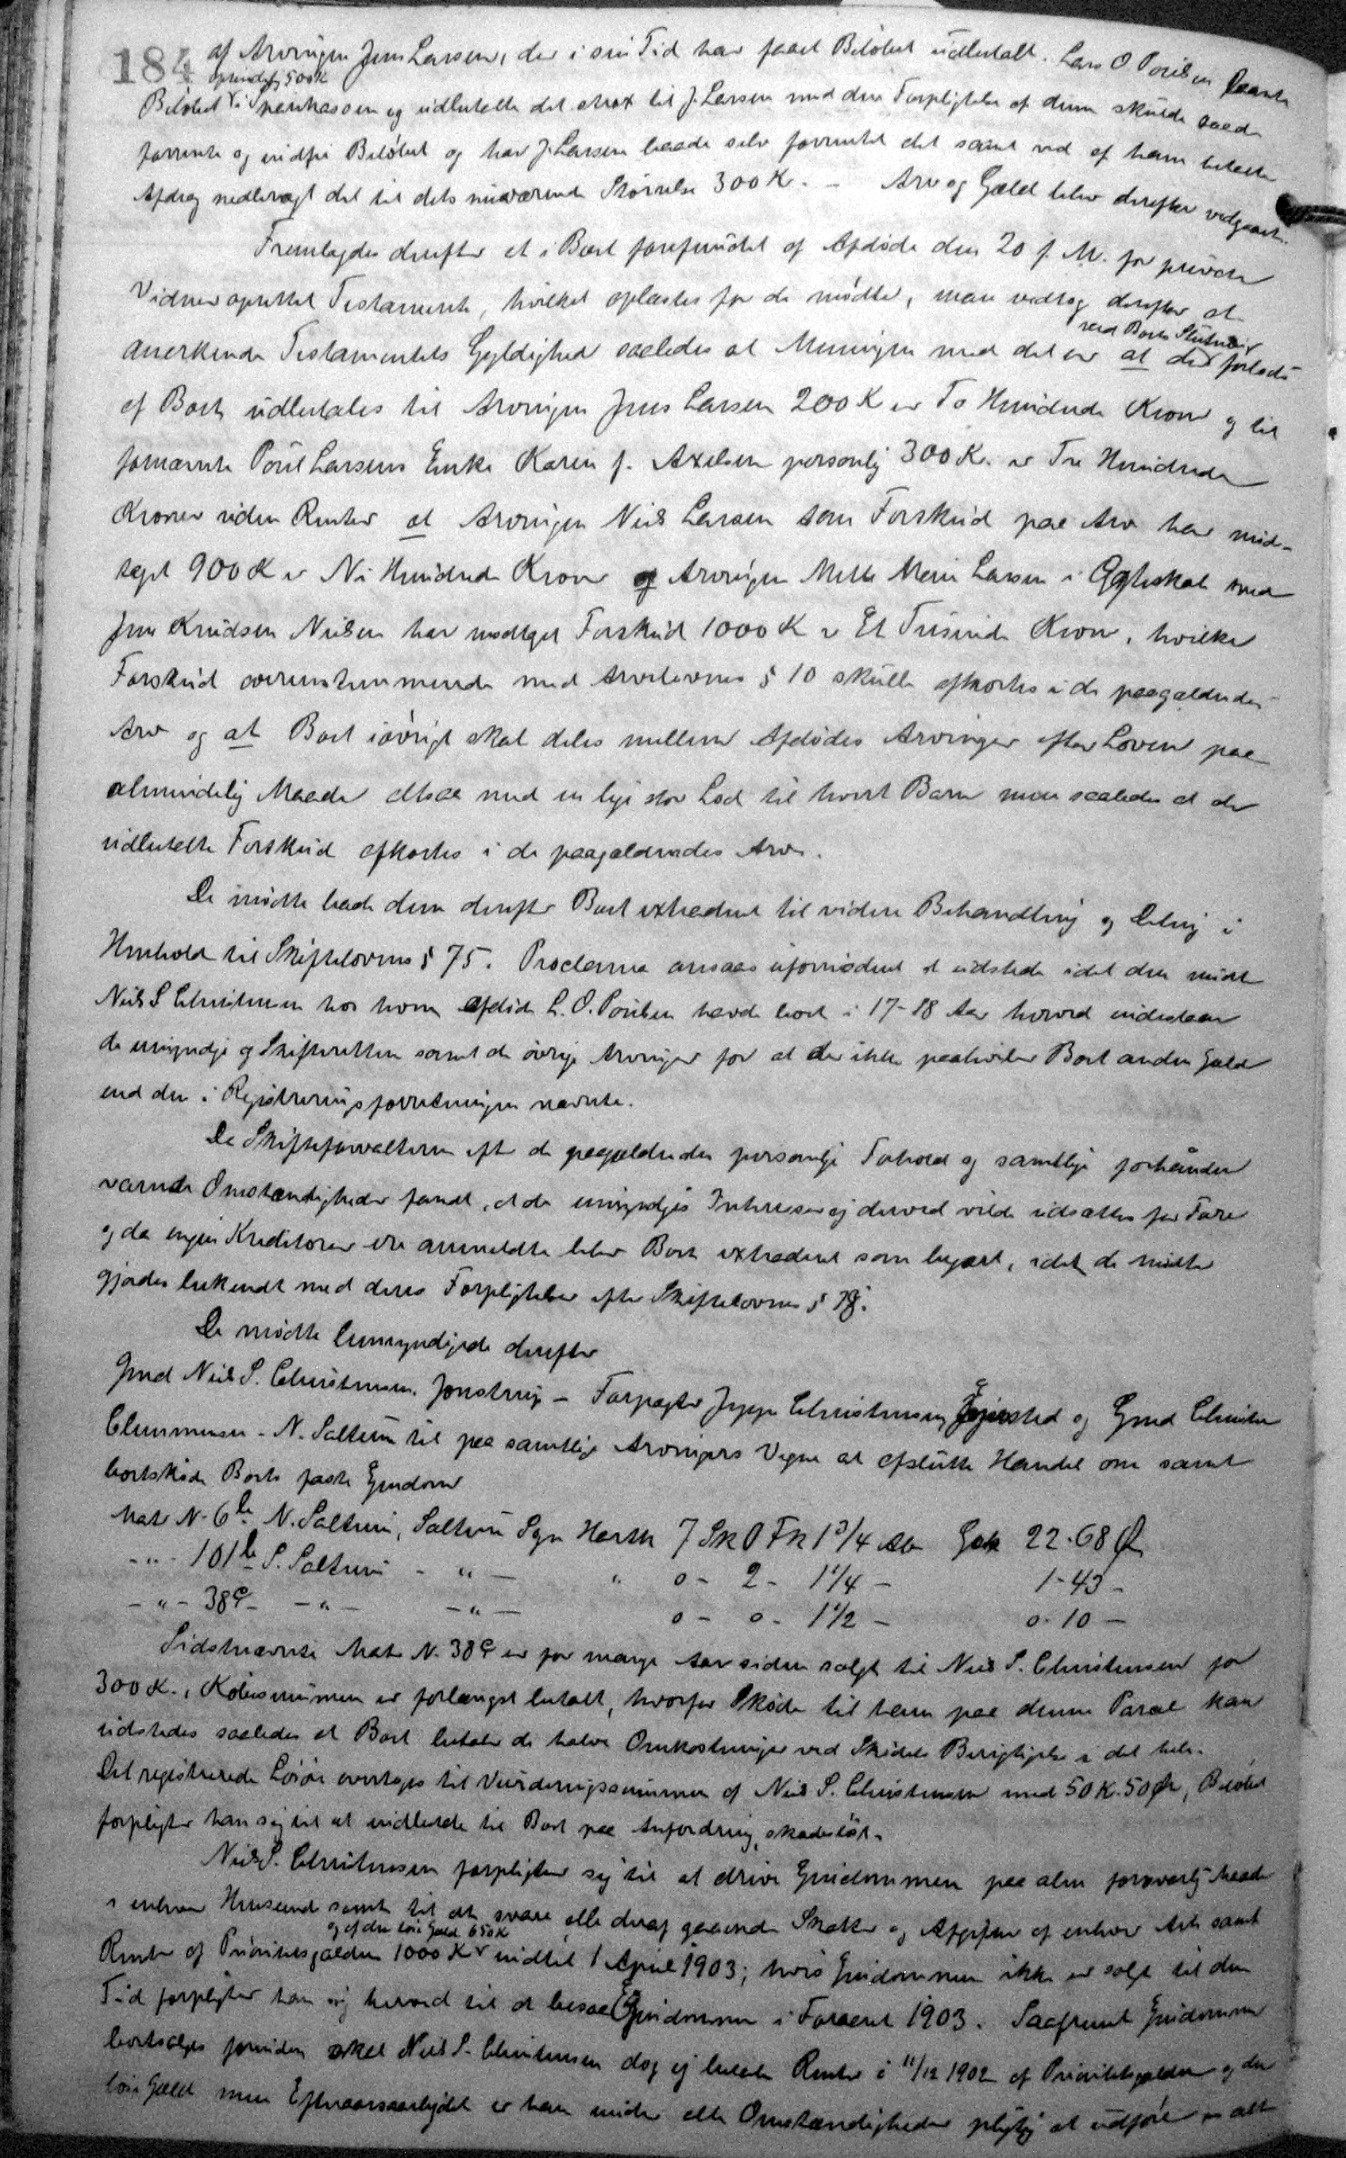 184 af Arvingen Jens Larsen, der i sin Tid har faaet Beløbet udbetalt. Lars O Poulsen laante
oprindelig 500 K
Beløbet i Sparekassen og udbetalte det strax til J. Larsen mod den Forpligtelse at denne skulde
forrente og indfri Beløbet og har J. Larsen baade selv forrentet det samt ved af ham betalte
Afdrag nedbragt det til dets nuværende Størrelse 300 K. – Arv og Gæld blev derefter vedgaaet.
Fremlagdes derefter et i Boet forefundet af Afdøde den 20 f. M. for private
Vidner oprettet Testamente, hvilket oplæstes for de mødte, man vedtog derefter at
anerkende Testamentets Gyldighed saaledes at Meningen med det er at der forlods
ved Boets Slutning
af Boet udbetales til Arvingen Jens Larsen 200 K er To Hundrede Kroner og til
fornævnte Poul Larsens Enke Karen f. Axelsen personlig 300 K. er Tre Hundrede
Kroner uden Renter at Arvingen Niels Larsen som Forskud paa Arv har mod-
taget 900 K er Ni Hundrede Kroner og Arvingen Mette Marie Larsen i Ægteskab med
Jens Knudsen Nielsen har modtaget Forskud 1000 K er Et Tusinde Kroner, hvilke
Forskud overensstemmende med Arvelovens § 10 skulle afkortes i de paagældendes
Arv og at Boet iøvrigt skal deles mellem Afdødes Arvinger efter Loven paa
almindelig Maade altsaa med en lige stor Lod til hvert Barn men saaledes at de
udbetalte Forskud afkortes i de paagældendes Arv.
De mødte bade dem derefter Boet extraderet til videre Behandling og Deling i
Henhold til Skiftelovens § 75. Proclama ansaas ufornødent at udstede idet den mødte
Niels S Christensen hos hvem afdøde L. O. Poulsen havde boet i 17-18 Aar herved indestaar
de umyndige og Skifteretten samt de øvrige Arvinger for at der ikke paahviler Boet anden Gæld
end den i Registreringsforretningen nævnte.
Da Skifteforvalteren efter de paagældendes personlige Forhold og samtlige forhaanden
værende Omstændigheder fandt, at de umyndiges Interesser ej derved vilde udsættes for Fare
og da ingen Kreditorer ere anmeldte blev Boet extraderet som begært, idet de mødte
gjordes bekendt med deres Forpligtelser efter Skiftelovens § 78.
De mødte bemyndigede derefter
Gmd Niels S. Christensen. Jonstrup – Forpagter Jeppe Christensen, og Gmd Christen
Clemmensen – N. Saltum til paa samtlige Arvingers Vegne at afslutte Handel om samt
bortskøde Boets faste Ejendom
Matr N. 6 b N. Saltum, Saltum Sogn Hartk 7 Sk 0 Fk 1 3/4 Alb Gsk 22-68 Ø
– " – 101 b S. Saltum – " – " 0 – 2 – 1 1/4 – 1-43 –
– " – 38 c – – " – – " – 0 – 0 – 1 1/2 – 0-10 –
Sidstnævnte Matr N. 38 c er for mange Aar siden solgt til Niels S. Christensen for
300 K., Købesummen er forlængst betalt, hvorfor Skøde til ham paa denne Parcel kan
udstedes saaledes at Boet betaler de halve Omkostninger ved Skødets Berigtigelse i det hele.
Det registrerede Løsøre overtages til Vurderingssummen af Niels S. Christensen med 50 K. 50 Ør, Beløbet
forpligter han sig til at indbetale til Boet paa Anfordring, skadesløst.
Niels S. Christensen forpligter sig til at drive Ejendommen paa alm forsvarlig Maade
i enhver Henseende samt til at svare alle deraf gaaende Skatter og Afgifter af enhver Art samt
og af den løse Gæld 650 K
Renter af Prioritetsgælden 1000 K indtil 1 April 1903; hvis Ejendommen ikke er solgt til den
Tid forpligter han sig herved til at besaa Ejendommen i Foraaret 1903. Saafremt Ejendommen
bortsælges forinden skal Niels S. Christensen dog ej betale Renter i 11/12 1902 af Prioritetsgælden og den
løse Gæld men Efteraarsarbejdet er han under alle Omstændigheder pligtig at udføre alt